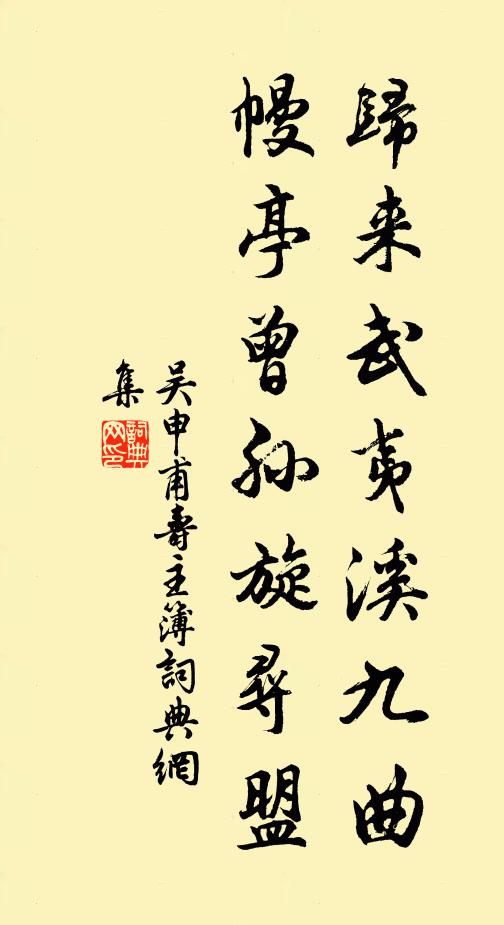 歸来武夷溪九曲
幔亭曾孫旋尋盟
吴申甫壽主簿詞典網
集
詞典
网印